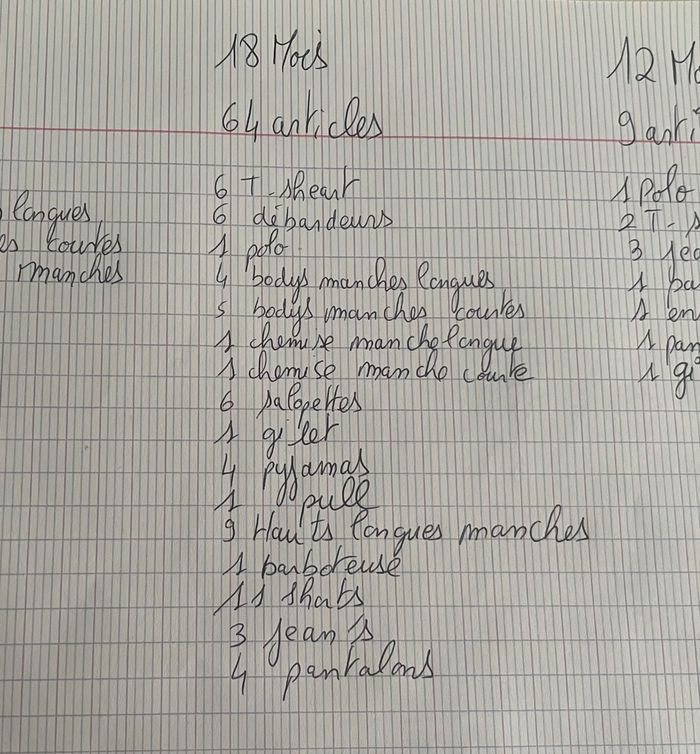 longues
es courtes
manches
18 Mois
64 articles
6 T-sheart
6 débardeurs
1 polo
4 bodys manches longues
5 bodys manches courtes
1 chemise manche longue
1 chemise manche courte
6 salopettes
1 gilet
4 pyjamas
1 pull
9 Hauts longues manches
1 barboteuse
11 shorts
3 jean's
4 pantalons
12 Mo
9 arti
1 polo
2 T-s
3 jea
1 pa
1 en
1 pan
1 gi